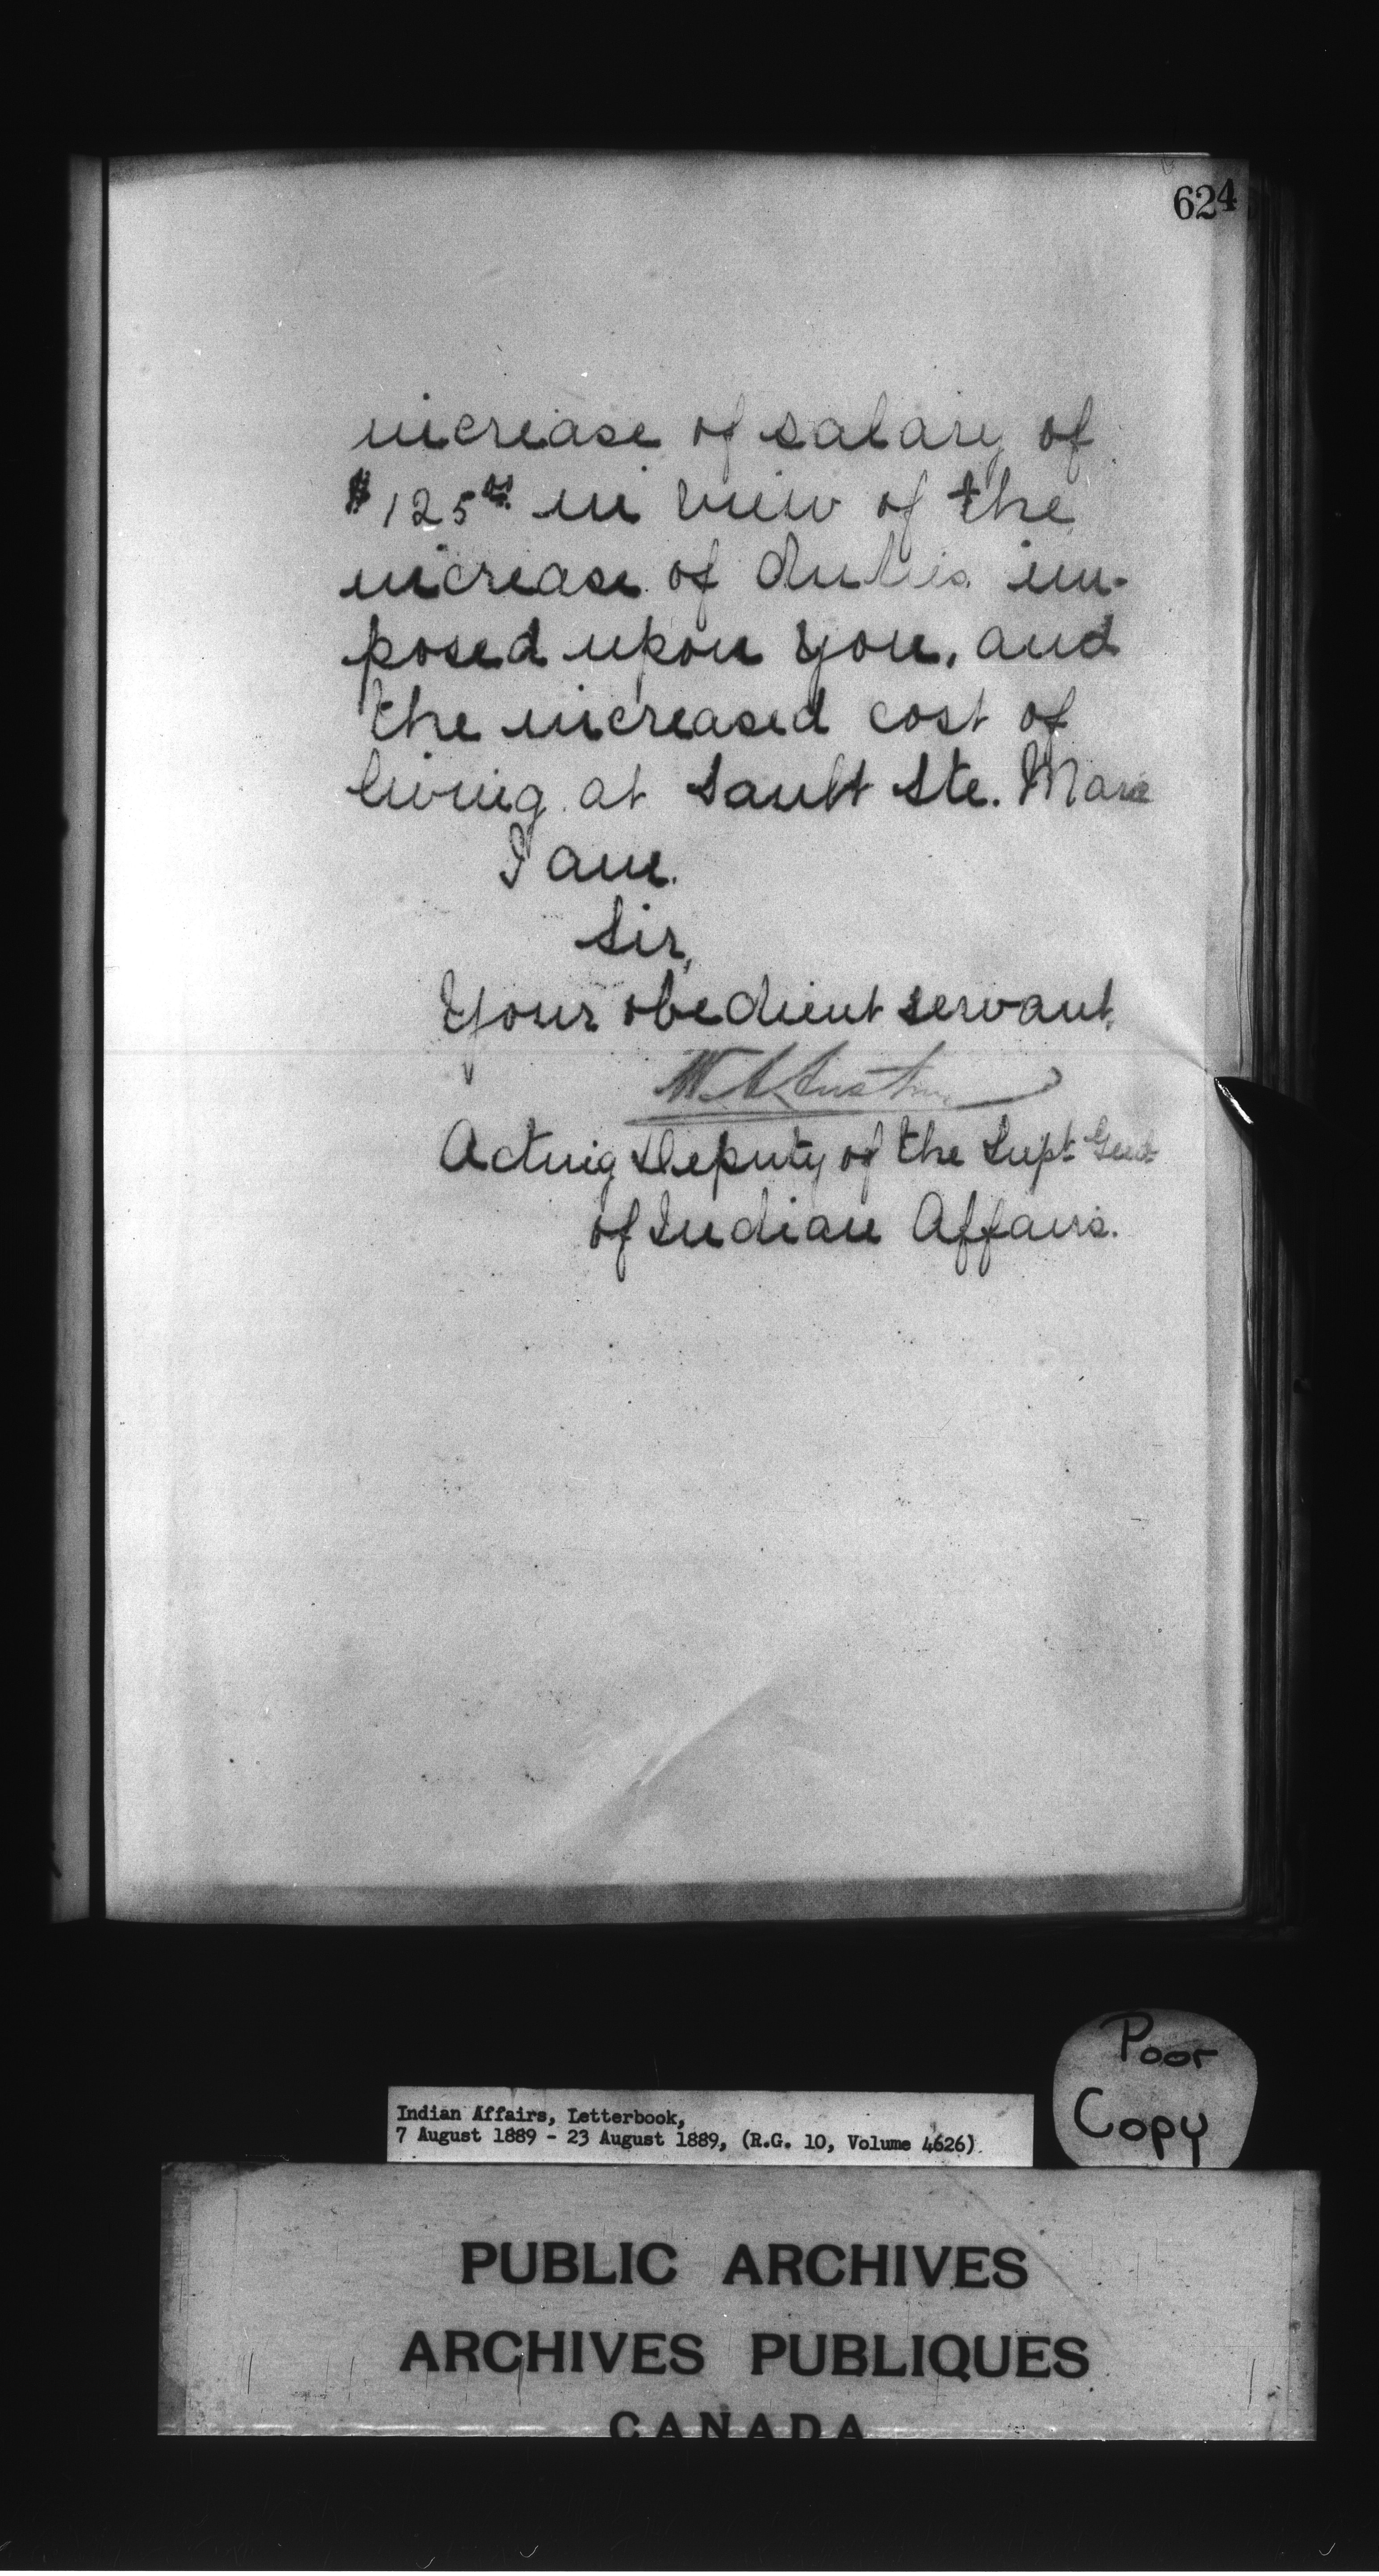 624
increase of salary of
$125.00 in view of the
increase of duties im-
posed upon you, and
the increased cost of
living at Sault Ste. Marie
I am.
Sir,
Your obedient servant,
Acting Deputy of the Supt Genl
of Indian Affairs.
Poor
Copy
Indian Affairs, Letterbook,
7 August 1889 - 23 August 1889, (R.G. 10, Volume 4626)
PUBLIC ARCHIVES
ARCHIVES PUBLIQUES
CANADA